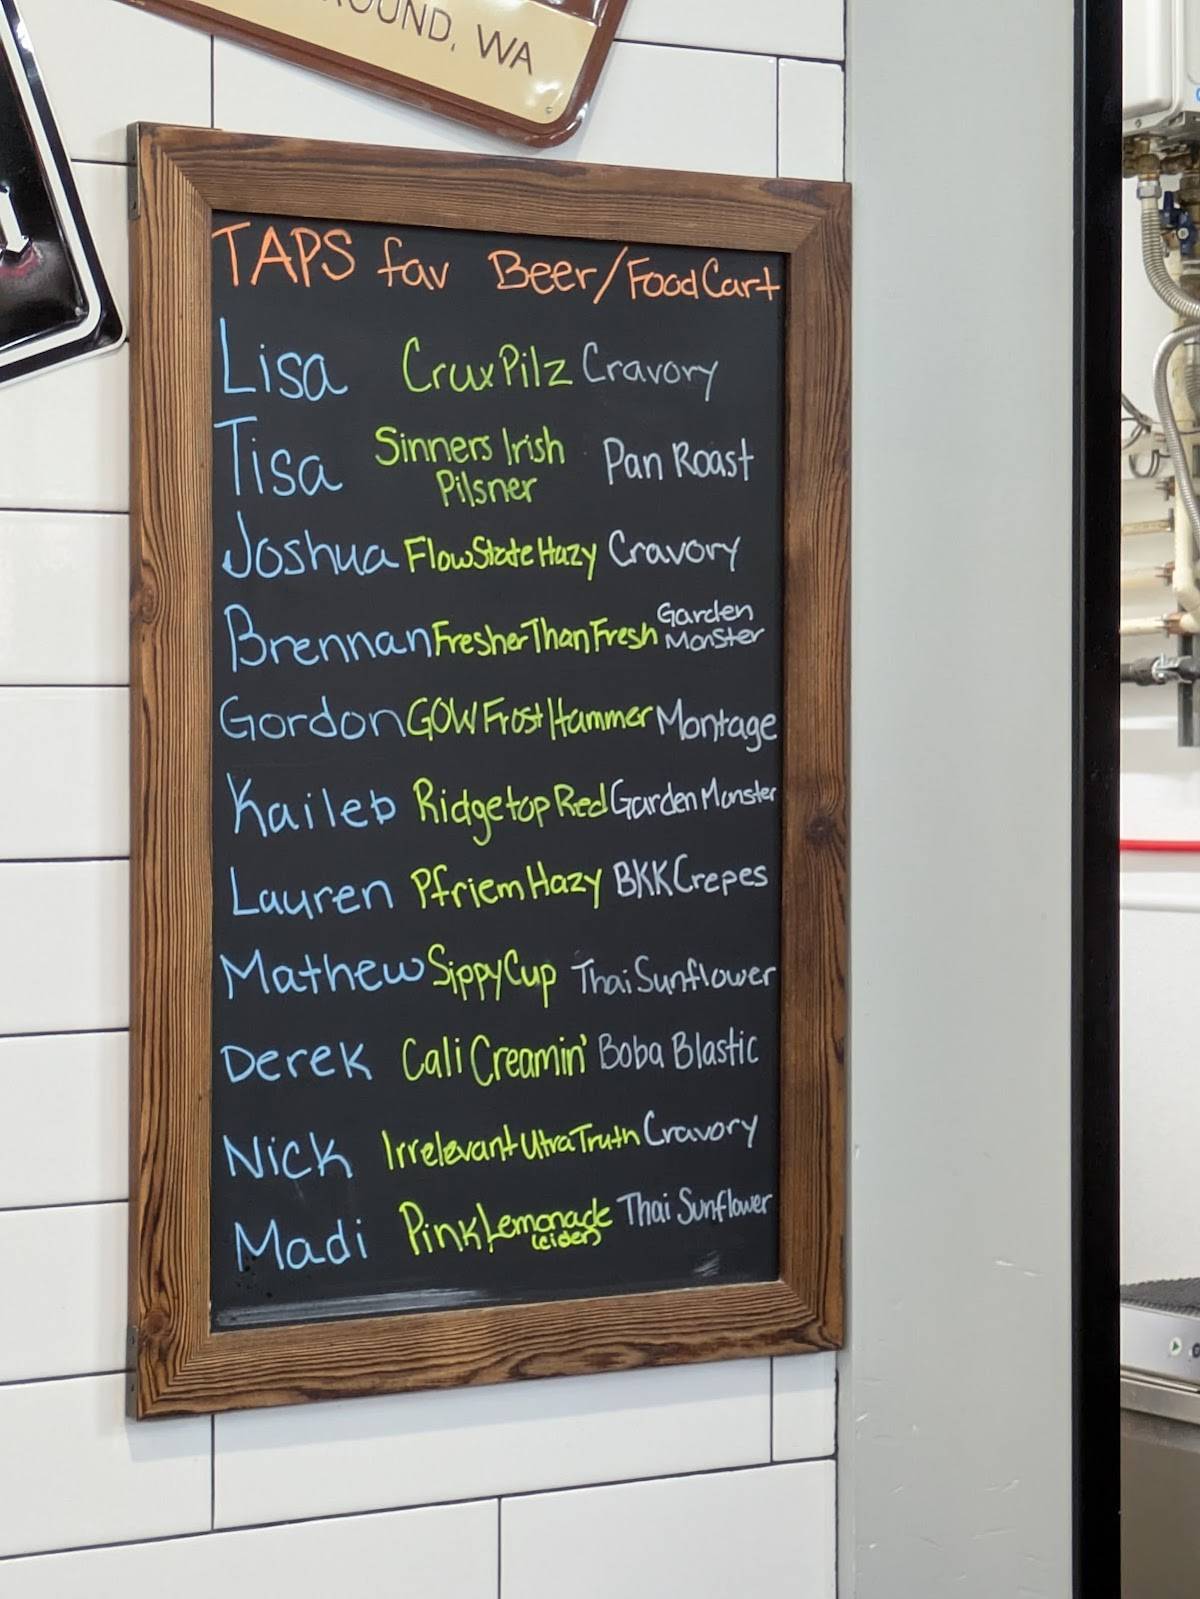 OUND, WA
TAPS fav Beer/Food Cart
Lisa Crux Pilz Cravory
Tisa Sinners Irish Pilsner Pan Roast
Joshua Flow State Hazy Cravory
Brennan Fresher Than Fresh Garden Monster
Gordon GOW Frost Hammer Montage
Kaileb Ridgetop Red Garden Monster
Lauren Pfriem Hazy BKK Crepes
Mathew Sippy Cup Thai Sunflower
Derek Cali Creamin' Boba Blastic
Nick Irrelevant Ultra Truth Cravory
Madi Pink Lemonade (cider) Thai Sunflower